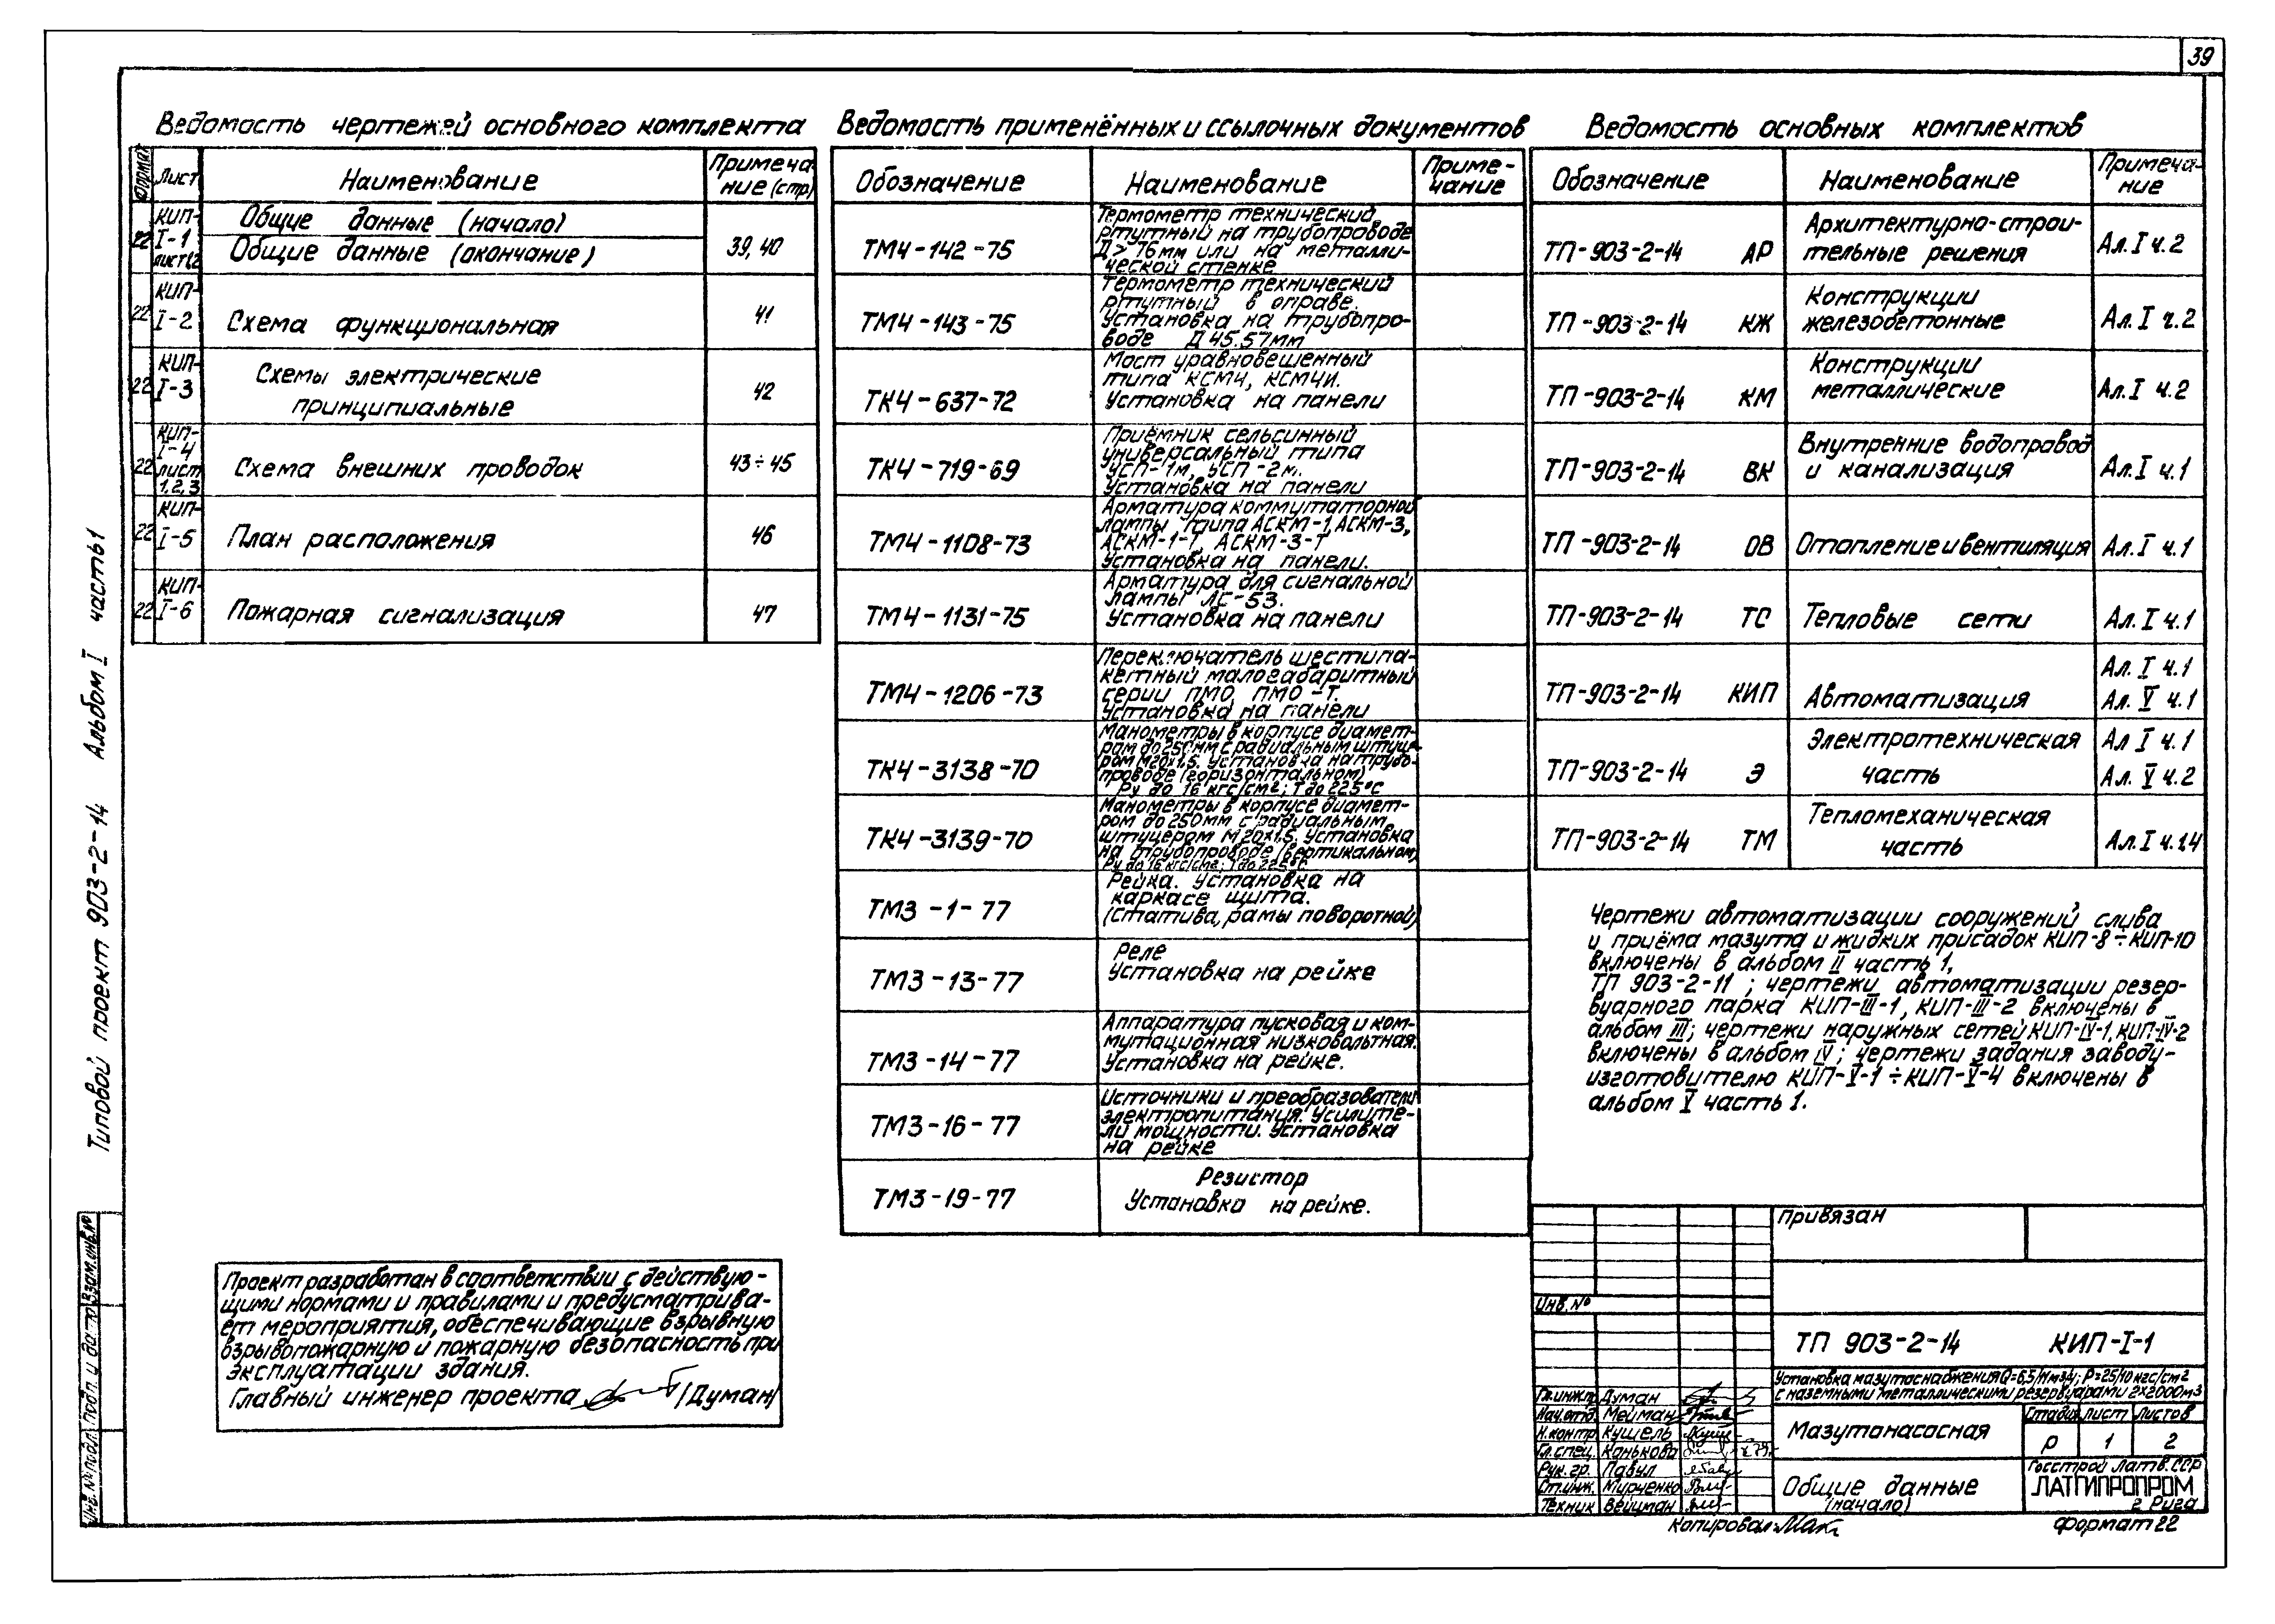 39
Ведомость чертежей основного комплекта
Формат
Лист
Наименование
Примеча-
ние (стр)
22
КИП-
I-1
лист1,2
Общие данные (начало)
Общие данные (окончание)
39, 40
22
КИП-
I-2
Схема функциональная
41
22
КИП-
I-3
Схемы электрические
принципиальные
42
22
КИП-
I-4
лист
1, 2, 3
Схема внешних проводок
43÷45
22
КИП-
I-5
План расположения
46
22
КИП-
I-6
Пожарная сигнализация
47
Ведомость применённых и ссылочных документов
Обозначение
Наименование
Приме-
чание
ТМ4-142-75
Термометр технический
ртутный на трубопроводе
Д>76мм или на металли-
ческой стенке
ТМ4-143-75
Термометр технический
ртутный в оправе.
Установка на трубопро-
воде Д 45.57мм
ТК4-637-72
Мост уравновешенный
типа КСМ4, КСМ4И.
Установка на панели
ТК4-719-69
Приёмник сельсинный
универсальный типа
УСП-1м, УСП-2м.
Установка на панели
ТМ4-1108-73
Арматура коммутаторной
лампы типа АСКМ-1, АСКМ-3,
АСКМ-1-Т, АСКМ-3-Т
Установка на панели.
ТМ4-1131-75
Арматура для сигнальной
лампы ЛС-53.
Установка на панели
ТМ4-1206-73
Переключатель шестипа-
кетный малогабаритный
серии ПМО, ПМО-Т.
Установка на панели
ТК4-3138-70
Манометры в корпусе диамет-
ром до 250мм с радиальным штуце-
ром М20х1,5. Установка на трубо-
проводе (горизонтальном)
Ру до 16 кгс/см2; Т до 225°С
ТК4-3139-70
Манометры в корпусе диамет-
ром до 250мм с радиальным
штуцером М20х1,5. Установка
на трубопроводе (вертикальном)
Ру до 16 кгс/см2; Т до 225°С
ТМ3-1-77
Рейка. Установка на
каркасе щита.
(Статива, рамы поворотной)
ТМ3-13-77
Реле
Установка на рейке
ТМ3-14-77
Аппаратура пусковая и ком-
мутационная низковольтная.
Установка на рейке.
ТМ3-16-77
Источники и преобразователи
электропитания. Усилите-
ли мощности. Установка
на рейке
ТМ3-19-77
Резистор
Установка на рейке.
Ведомость основных комплектов
Обозначение
Наименование
Примеча-
ние
ТП-903-2-14 АР
Архитектурно-строи-
тельные решения
Ал. I ч.2
ТП-903-2-14 КЖ
Конструкции
железобетонные
Ал. I ч.2
ТП-903-2-14 КМ
Конструкции
металлические
Ал. I ч.2
ТП-903-2-14 ВК
Внутренние водопровод
и канализация
Ал. I ч.1
ТП-903-2-14 ОВ
Отопление и вентиляция
Ал. I ч.1
ТП-903-2-14 ТС
Тепловые сети
Ал. I ч.1
ТП-903-2-14 КИП
Автоматизация
Ал. I ч.1
Ал. V ч.1
ТП-903-2-14 Э
Электротехническая
часть
Ал I ч.1
Ал. V ч.2
ТП-903-2-14 ТМ
Тепломеханическая
часть
Ал. I ч.1,4
Чертежи автоматизации сооружений слива
и приёма мазута и жидких присадок КИП-8÷КИП-10
включены в альбом II часть 1,
ТП 903-2-11; чертежи автоматизации резер-
вуарного парка КИП-III-1, КИП-III-2 включены в
альбом III; чертежи наружных сетей КИП-IV-1, КИП-IV-2
включены в альбом IV; чертежи задания заводу-
изготовителю КИП-V-1÷КИП-V-4 включены в
альбом V часть 1.
Типовой проект 903-2-14 Альбом I часть 1
Инв. № подл. Подп. и дата Взам. инв. №
Проект разработан в соответствии с действую-
щими нормами и правилами и предусматрива-
ет мероприятия, обеспечивающие взрывную
взрывопожарную и пожарную безопасность при
эксплуатации здания.
Главный инженер проекта /Думан/
Привязан
Инв. №
ТП 903-2-14 КИП-I-1
Установка мазутоснабжения Q=6,5/11м3/ч; Р=25/10 кгс/см2
с наземными металлическими резервуарами 2х2000м3
Гл. инж.пр. Думан
Нач. отд. Мейман
Н. контр. Кушель
Гл. спец. Канькова
Рук. гр. Павул
Ст. инж. Мирченко
Техник Вейцман
Мазутонасосная
Стадия Лист Листов
Р 1 2
Общие данные
(начало)
Госстрой Латв. ССР
ЛАТГИПРОПРОМ
г. Рига
Копировал:
Формат 22